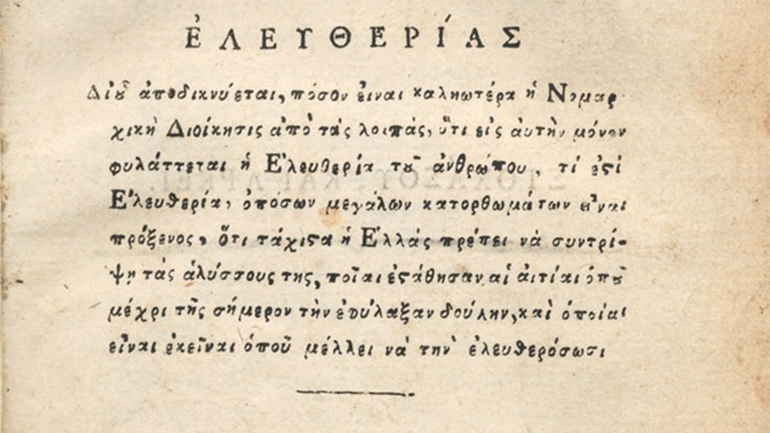 ἘΛΕΥΘΕΡΊΑΣ
Δἰ οὗ ἀποδικνύεται, πόσον εἶναι καλιωτέρα ἡ Νομαρ-
χικὴ Διοίκησις ἀπὸ τὰς λοιπάς, ὅτι εἰς αὐτὴν μόνον
φυλάττεται ἡ Ἐλευθερία τοῦ ἀνθρώπου, τί ἐστὶ
Ἐλευθερία, ὁπόσων μεγάλων κατορθωμάτων εἶναι
πρόξενος, ὅτι τάχιστα ἡ Ἑλλὰς πρέπει νὰ συντρί-
ψῃ τὰς ἁλύσσους της, ποῖαι ἐστάθησαν αἱ αἰτίαι ὁποῦ
μέχρι τῆς σήμερον τὴν ἐφύλαξαν δούλην, καὶ ὁποῖαι
εἶναι ἐκεῖναι ὁποῦ μέλλει νὰ τὴν ἐλευθερόσωσι